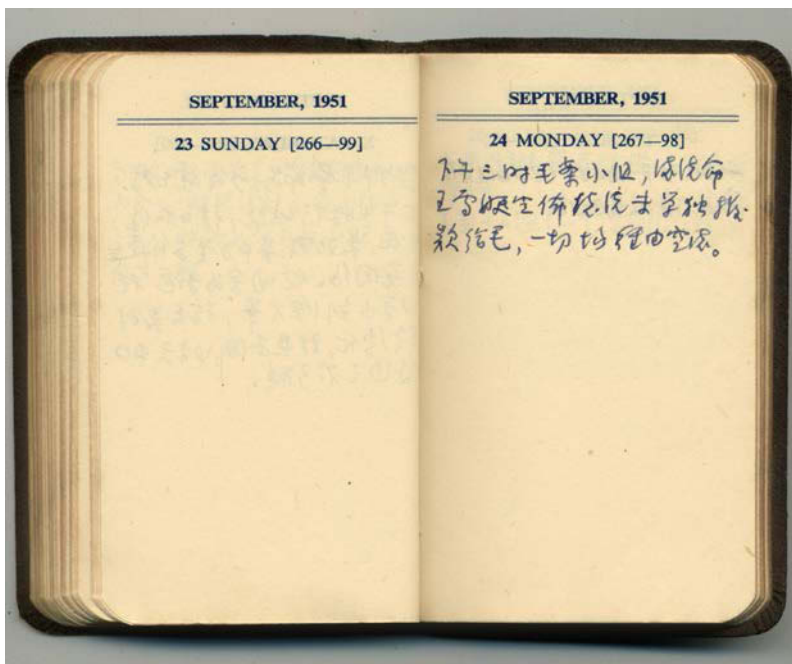 SEPTEMBER, 1951
23 SUNDAY [266—99]
SEPTEMBER, 1951
24 MONDAY [267—98]
下午三时毛案小组,
王雪艇宣佈總統未单独拨
款给毛,一切均经由空军。